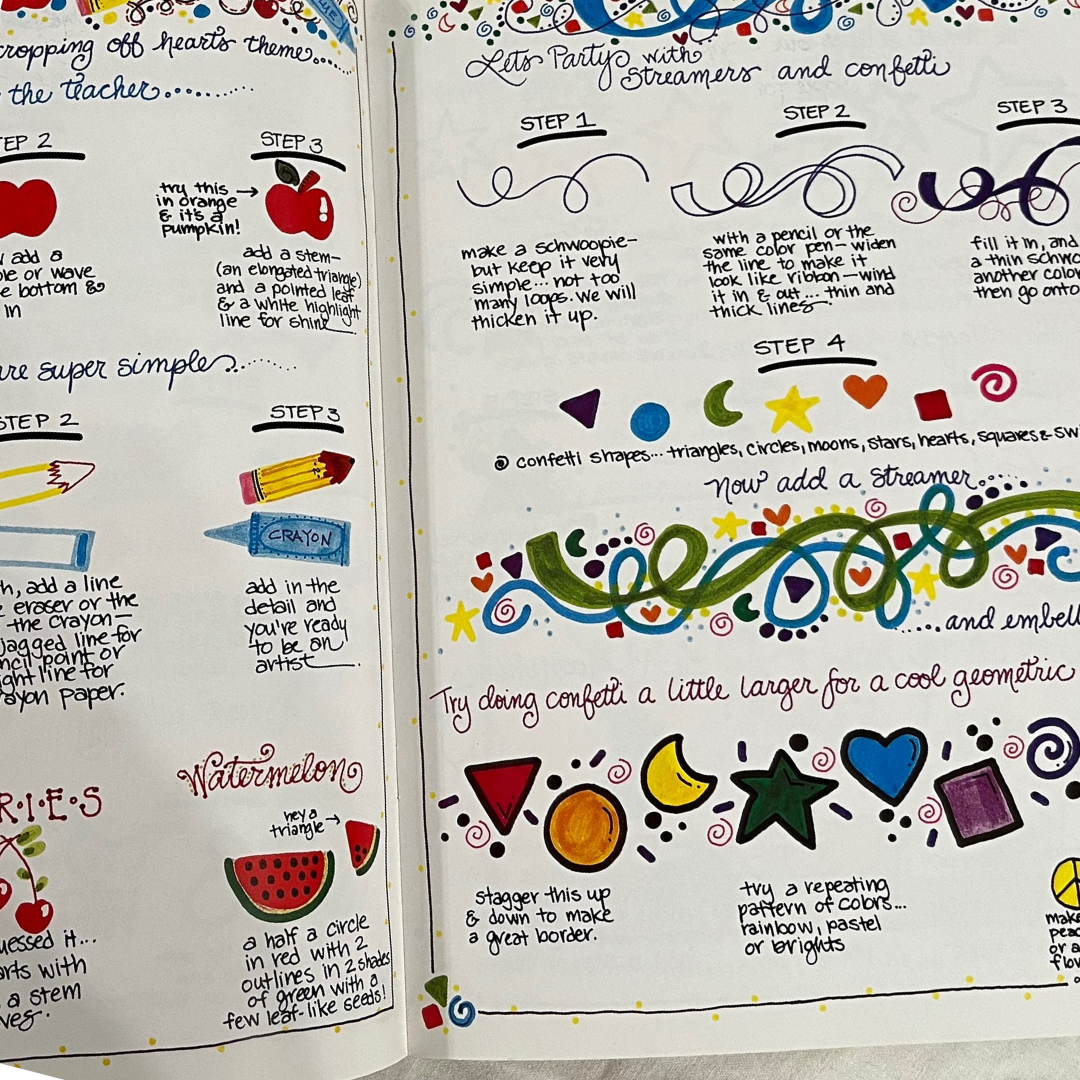 cropping off hearts theme......
the teacher............
STEP 2
STEP 3
try this →
in orange
& it's a
pumpkin!
add a
or wave
bottom &
in
add a stem-
(an elongated triangle)
and a pointed leaf
& a white highlight
line for shine
are super simple.........
STEP 2
STEP 3
CRAYON
add a line
eraser or the
the crayon-
jagged line for
point or
line for
paper.
add in the
detail and
you're ready
to be an
artist
R·I·E·S
Watermelon
hey a
triangle →
with
a stem
a half a circle
in red with 2
outlines in 2 shades
of green with a
few leaf-like seeds!
Lets Party with
streamers and confetti
STEP 1
STEP 2
STEP 3
make a schwoopie-
but keep it very
simple... not too
many loops. we will
thicken it up.
with a pencil or the
same color pen - widen
the line to make it
look like ribbon - wind
it in & out ... thin and
thick lines
fill it in, and
a thin
another color
then go onto
STEP 4
confetti shapes... triangles, circles, moons, stars, hearts, squares &
Now add a streamer.....
.....and
Try doing confetti a little larger for a cool geometric
stagger this up
& down to make
a great border.
try a repeating
pattern of colors...
rainbow, pastel
or brights
make
or a